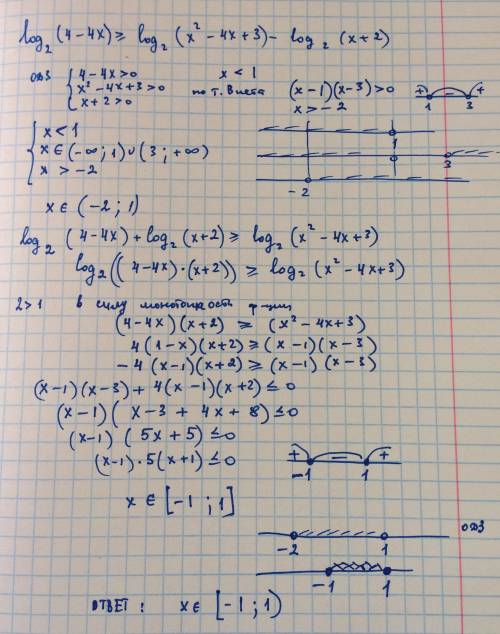 log₂ (4-4x) ≥ log₂ (x² - 4x + 3) - log₂ (x+2)
ОДЗ { 4-4x>0 x < 1
x²-4x+3>0 по т. Виета (x-1)(x-3)>0
x+2>0 x>-2
+ 1 3 +
{ x<1
x∈(-∞;1)∪(3;+∞)
x > -2
1
3
-2
x∈(-2;1)
log₂ (4-4x) + log₂ (x+2) ≥ log₂ (x²-4x+3)
log₂((4-4x)·(x+2)) ≥ log₂ (x²-4x+3)
2>1 в силу монотонность ф-ции
(4-4x)(x+2) ≥ (x²-4x+3)
4(1-x)(x+2) ≥ (x-1)(x-3)
-4(x-1)(x+2) ≥ (x-1)(x-3)
(x-1)(x-3) + 4(x-1)(x+2) ≤ 0
(x-1)( x-3 + 4x + 8) ≤ 0
(x-1) (5x+5) ≤ 0
(x-1)·5(x+1) ≤ 0
+ - +
-1 1
x ∈ [-1 ; 1]
ОДЗ
-2 1
-1 1
ОТВЕТ : x∈ [-1 ; 1)